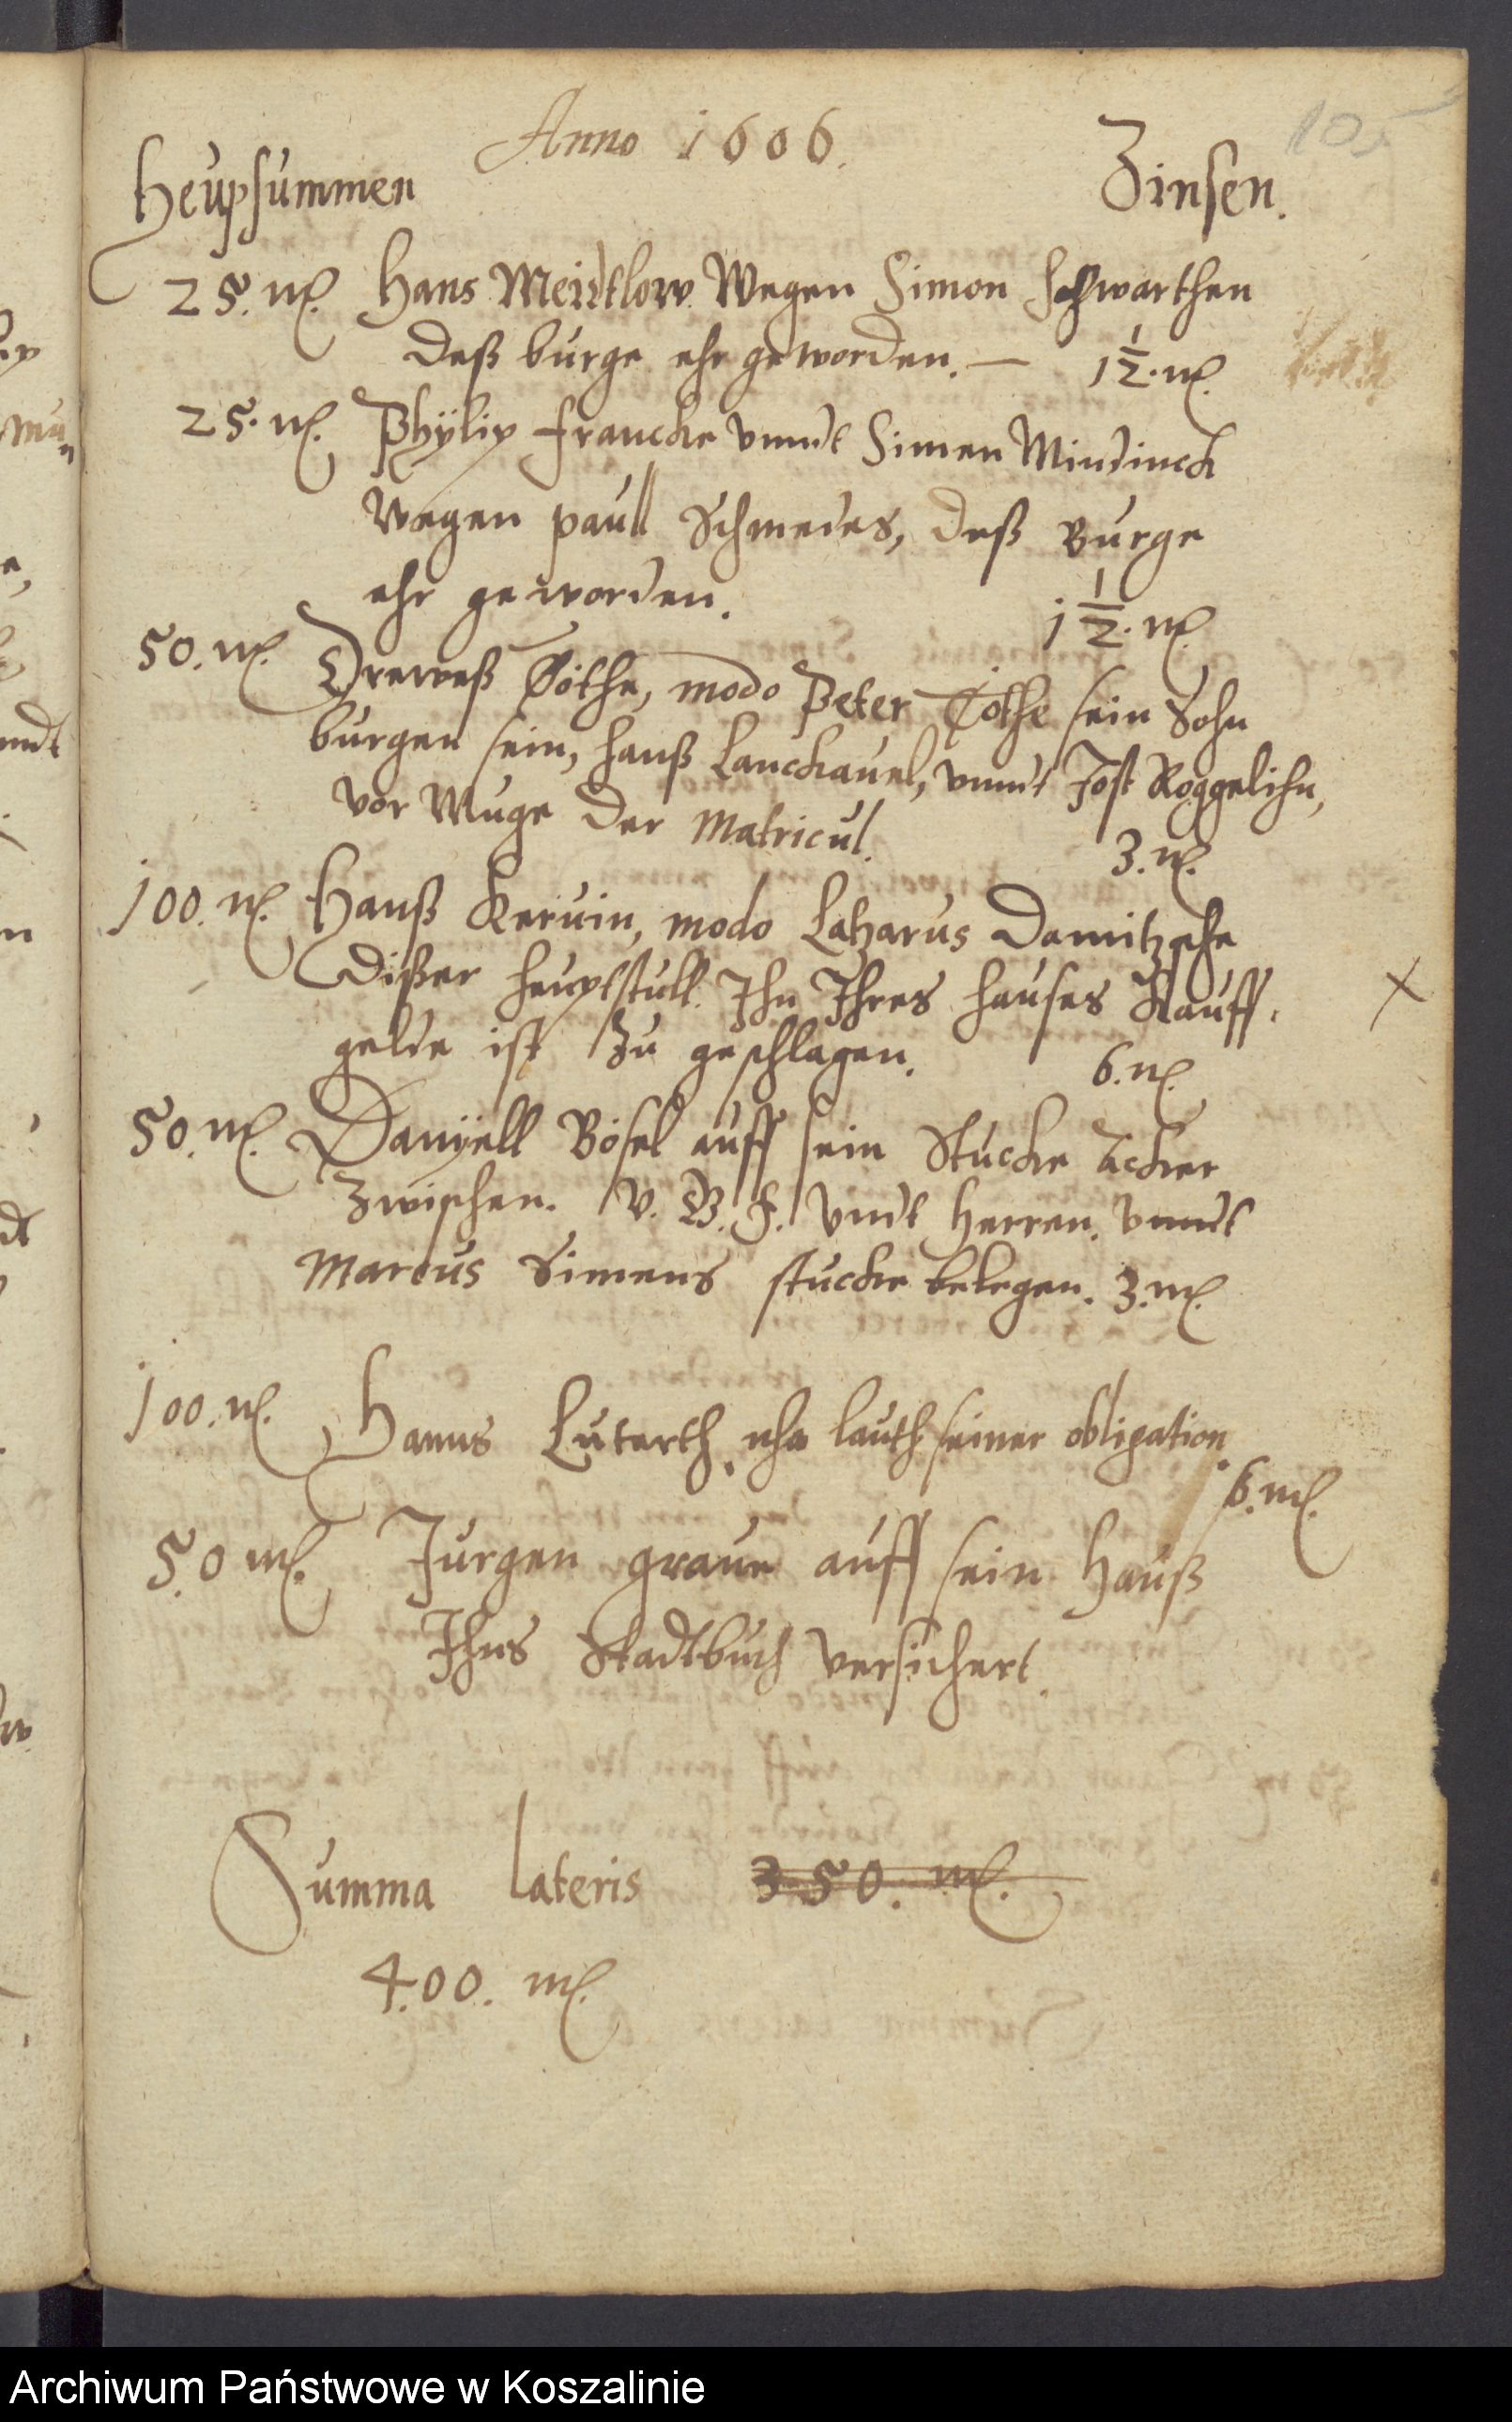 105
Anno 1606.
Heupsummen Zinsen.
25. m. Hans Meintlow Wegen Simon Schwarthen
deß burge ehr geworden. — 1 1/2. m.
25. m. Phÿlip Francke vnndt Simen Mindinck
Wegen paull Schmedes, deß Burge
ehr geworden. 1 1/2. m.
50. m. Dreweß Töthe, modo Peter Töthe sein Sohn
burgen sein, hanß Lanckauel, vnndt Jost Roggelihn,
vor Muge der Matricul. 3. m.
100. m. Hanß Keruin, modo Lazarus Damitz ehe
dißer heuptstull Ihn Ihres hauses Kauff
gelde ist zu geschlagen. 6. m.
50. m. Danÿell Bösel auff sein Stucke acker
zwischen. V. G. F. vndt Herren. vnndt
Marcus Simens stucke belegen. 3. m.
100. m. Hanns Luterth nha lauth seiner obligation
6. m.
50 m. Jurgen graue auff sein Hauß
Ihns Stadtbuch versichert.
Summa lateris 350. m.
400. m.
Archiwum Państwowe w Koszalinie